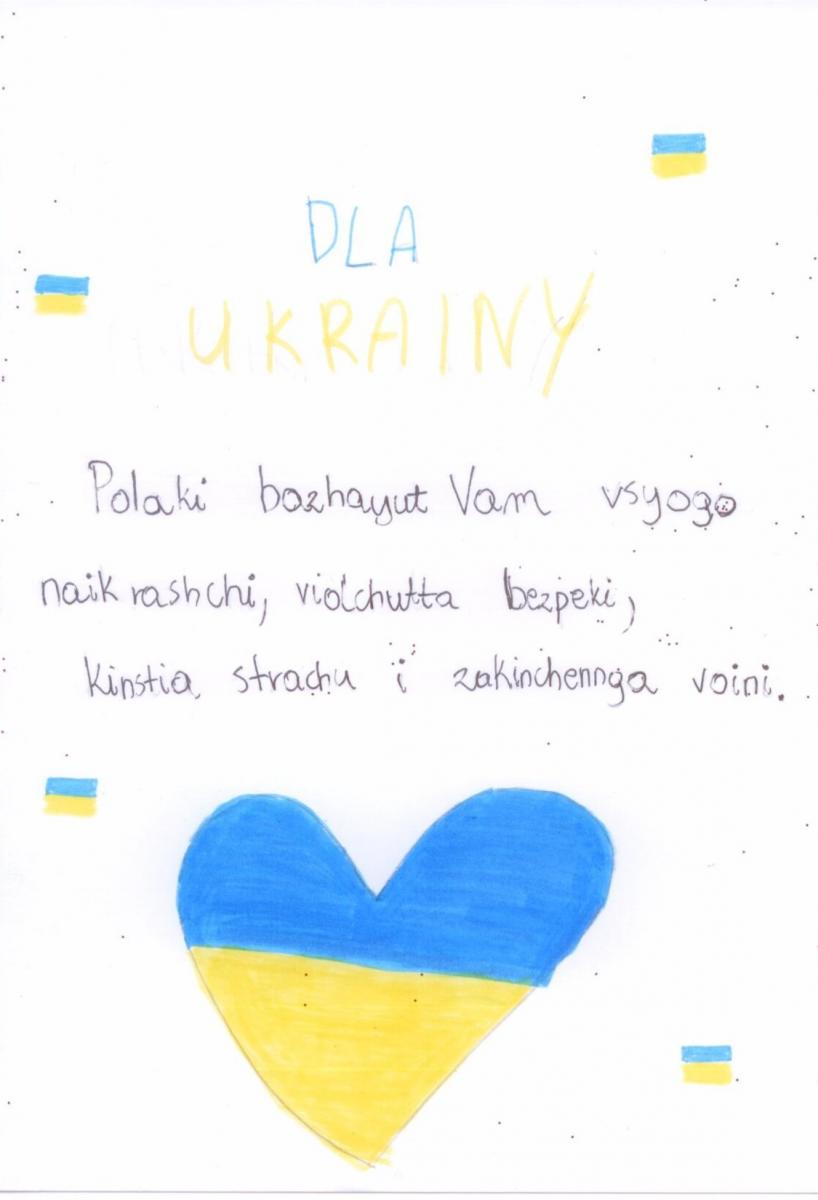 DLA
UKRAINY
Polaki bozhayut Vam vsyogo
naikrashchi, vidchutta bezpeki,
kinstia strachu i zakinchennga voini.